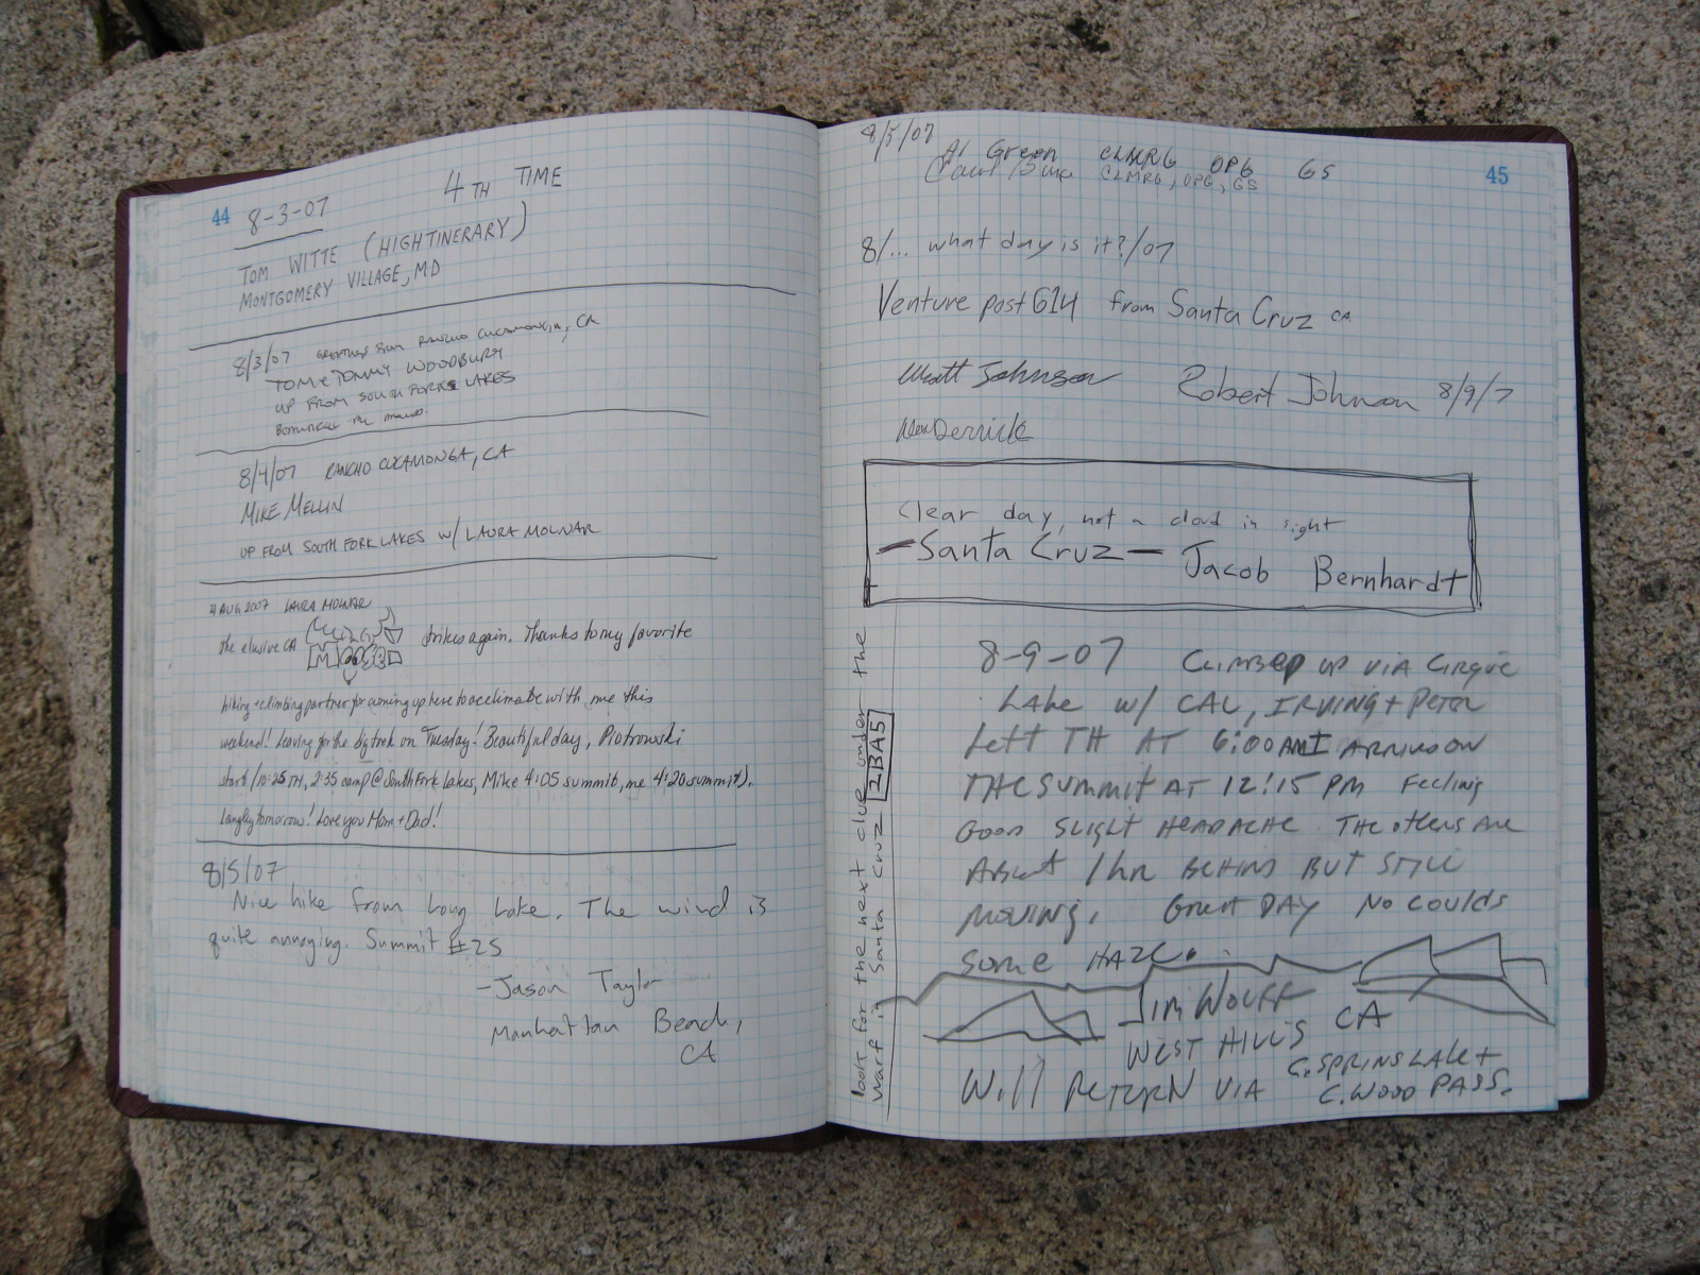 44
8-3-07
4TH TIME
TOM WITTE (HIGHTINERARY)
MONTGOMERY VILLAGE, MD
8/3/07 GREETINGS FROM RANCHO CUCAMONGA, CA
TOM & TOMMY WOODBURY
UP FROM SOUTH FORK LAKES
8/4/07 RANCHO CUCAMONGA, CA
MIKE MELLIN
UP FROM SOUTH FORK LAKES W/ LAURA MOLNAR
4 AUG 2007 LAURA MOLNAR
The elusive CA
strikes again. Thanks to my favorite
hiking + climbing partner for coming up here to acclimate with me this
weekend! Leaving for the big trek on Tuesday! Beautiful day, Piotrowski
start (10:25 TH, 2:35 camp @ South Fork Lakes, Mike 4:05 summit, me 4:20 summit).
Langley tomorrow! Love you Mom + Dad!
8/5/07
Nice hike from Long Lake. The wind is
quite annoying. Summit #25
-Jason Taylor
Manhattan Beach,
CA
45
8/5/07
Al Green CLMRG OPG GS
CLMRG, OPG, GS
8/... what day is it?/07
Venture post 614 from Santa Cruz CA
Matt Johnson Robert Johnson 8/9/7
Derrick
Clear day, not a cloud in sight
-Santa Cruz- Jacob Bernhardt
look for the next clue under the
warf in Santa Cruz 2BA5
8-9-07 CLIMBED UP VIA CIRQUE
LAKE W/ CAL, IRVING + PETER
LEFT TH AT 6:00 AM I ARRIVED ON
THE SUMMIT AT 12:15 PM FEELING
GOOD SLIGHT HEADACHE THE OTHERS ARE
ABOUT 1 HR BEHIND BUT STILL
MOVING. GREAT DAY NO COULDS
SOME HAZE.
JIM WOLFF
WEST HILLS CA
WILL RETURN VIA C. SPRINS LAKE +
C. WOOD PASS.